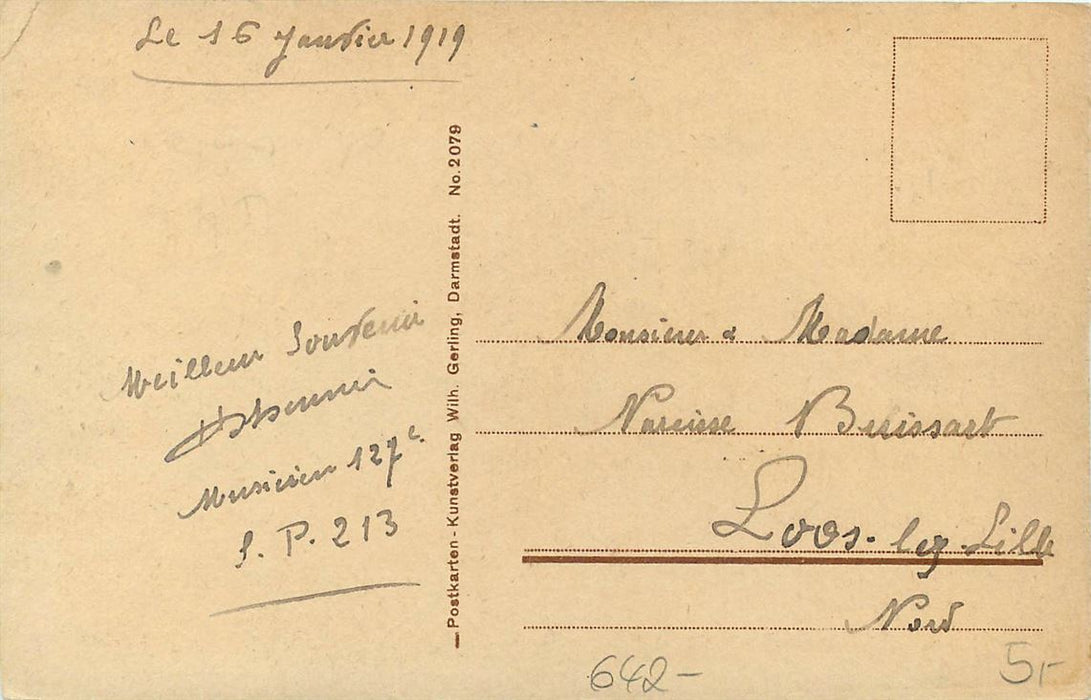 Le 16 Janvier 1919
Meilleur Souvenir
Musicien 127e
S. P. 213
Postkarten-Kunstverlag Wilh. Gerling, Darmstadt. No. 2079
Monsieur & Madame
Narcisse Buissart
Loos-lez-Lille
Nord
642-
5,-